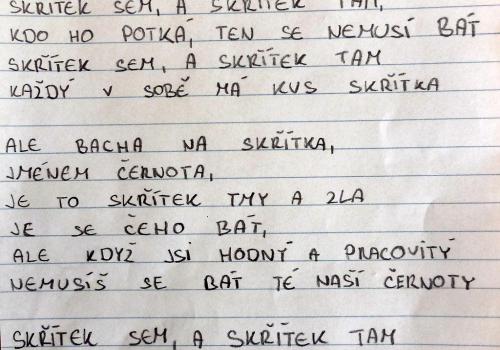 SKŘÍTEK SEM, A SKŘÍTEK TAM,
KDO HO POTKÁ, TEN SE NEMUSÍ BÁT
SKŘÍTEK SEM, A SKŘÍTEK TAM
KAŽDÝ V SOBĚ MÁ KUS SKŘÍTKA
ALE BACHA NA SKŘÍTKA,
JMÉNEM ČERNOTA,
JE TO SKŘÍTEK TMY A ZLA
JE SE ČEHO BÁT,
ALE KDYŽ JSI HODNÝ A PRACOVITÝ
NEMUSÍŠ SE BÁT TÉ NAŠÍ ČERNOTY
SKŘÍTEK SEM, A SKŘÍTEK TAM